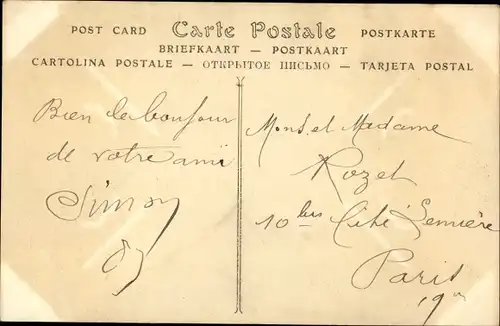 POST CARD Carte Postale POSTKARTE
BRIEFKAART — POSTKAART
CARTOLINA POSTALE — ОТКРЫТОЕ ПИСЬМО — TARJETA POSTAL
Bien le bonjour
de votre ami
Simon
Mons. et Madame
Rozet
10 bis Cité Lemière
Paris
19